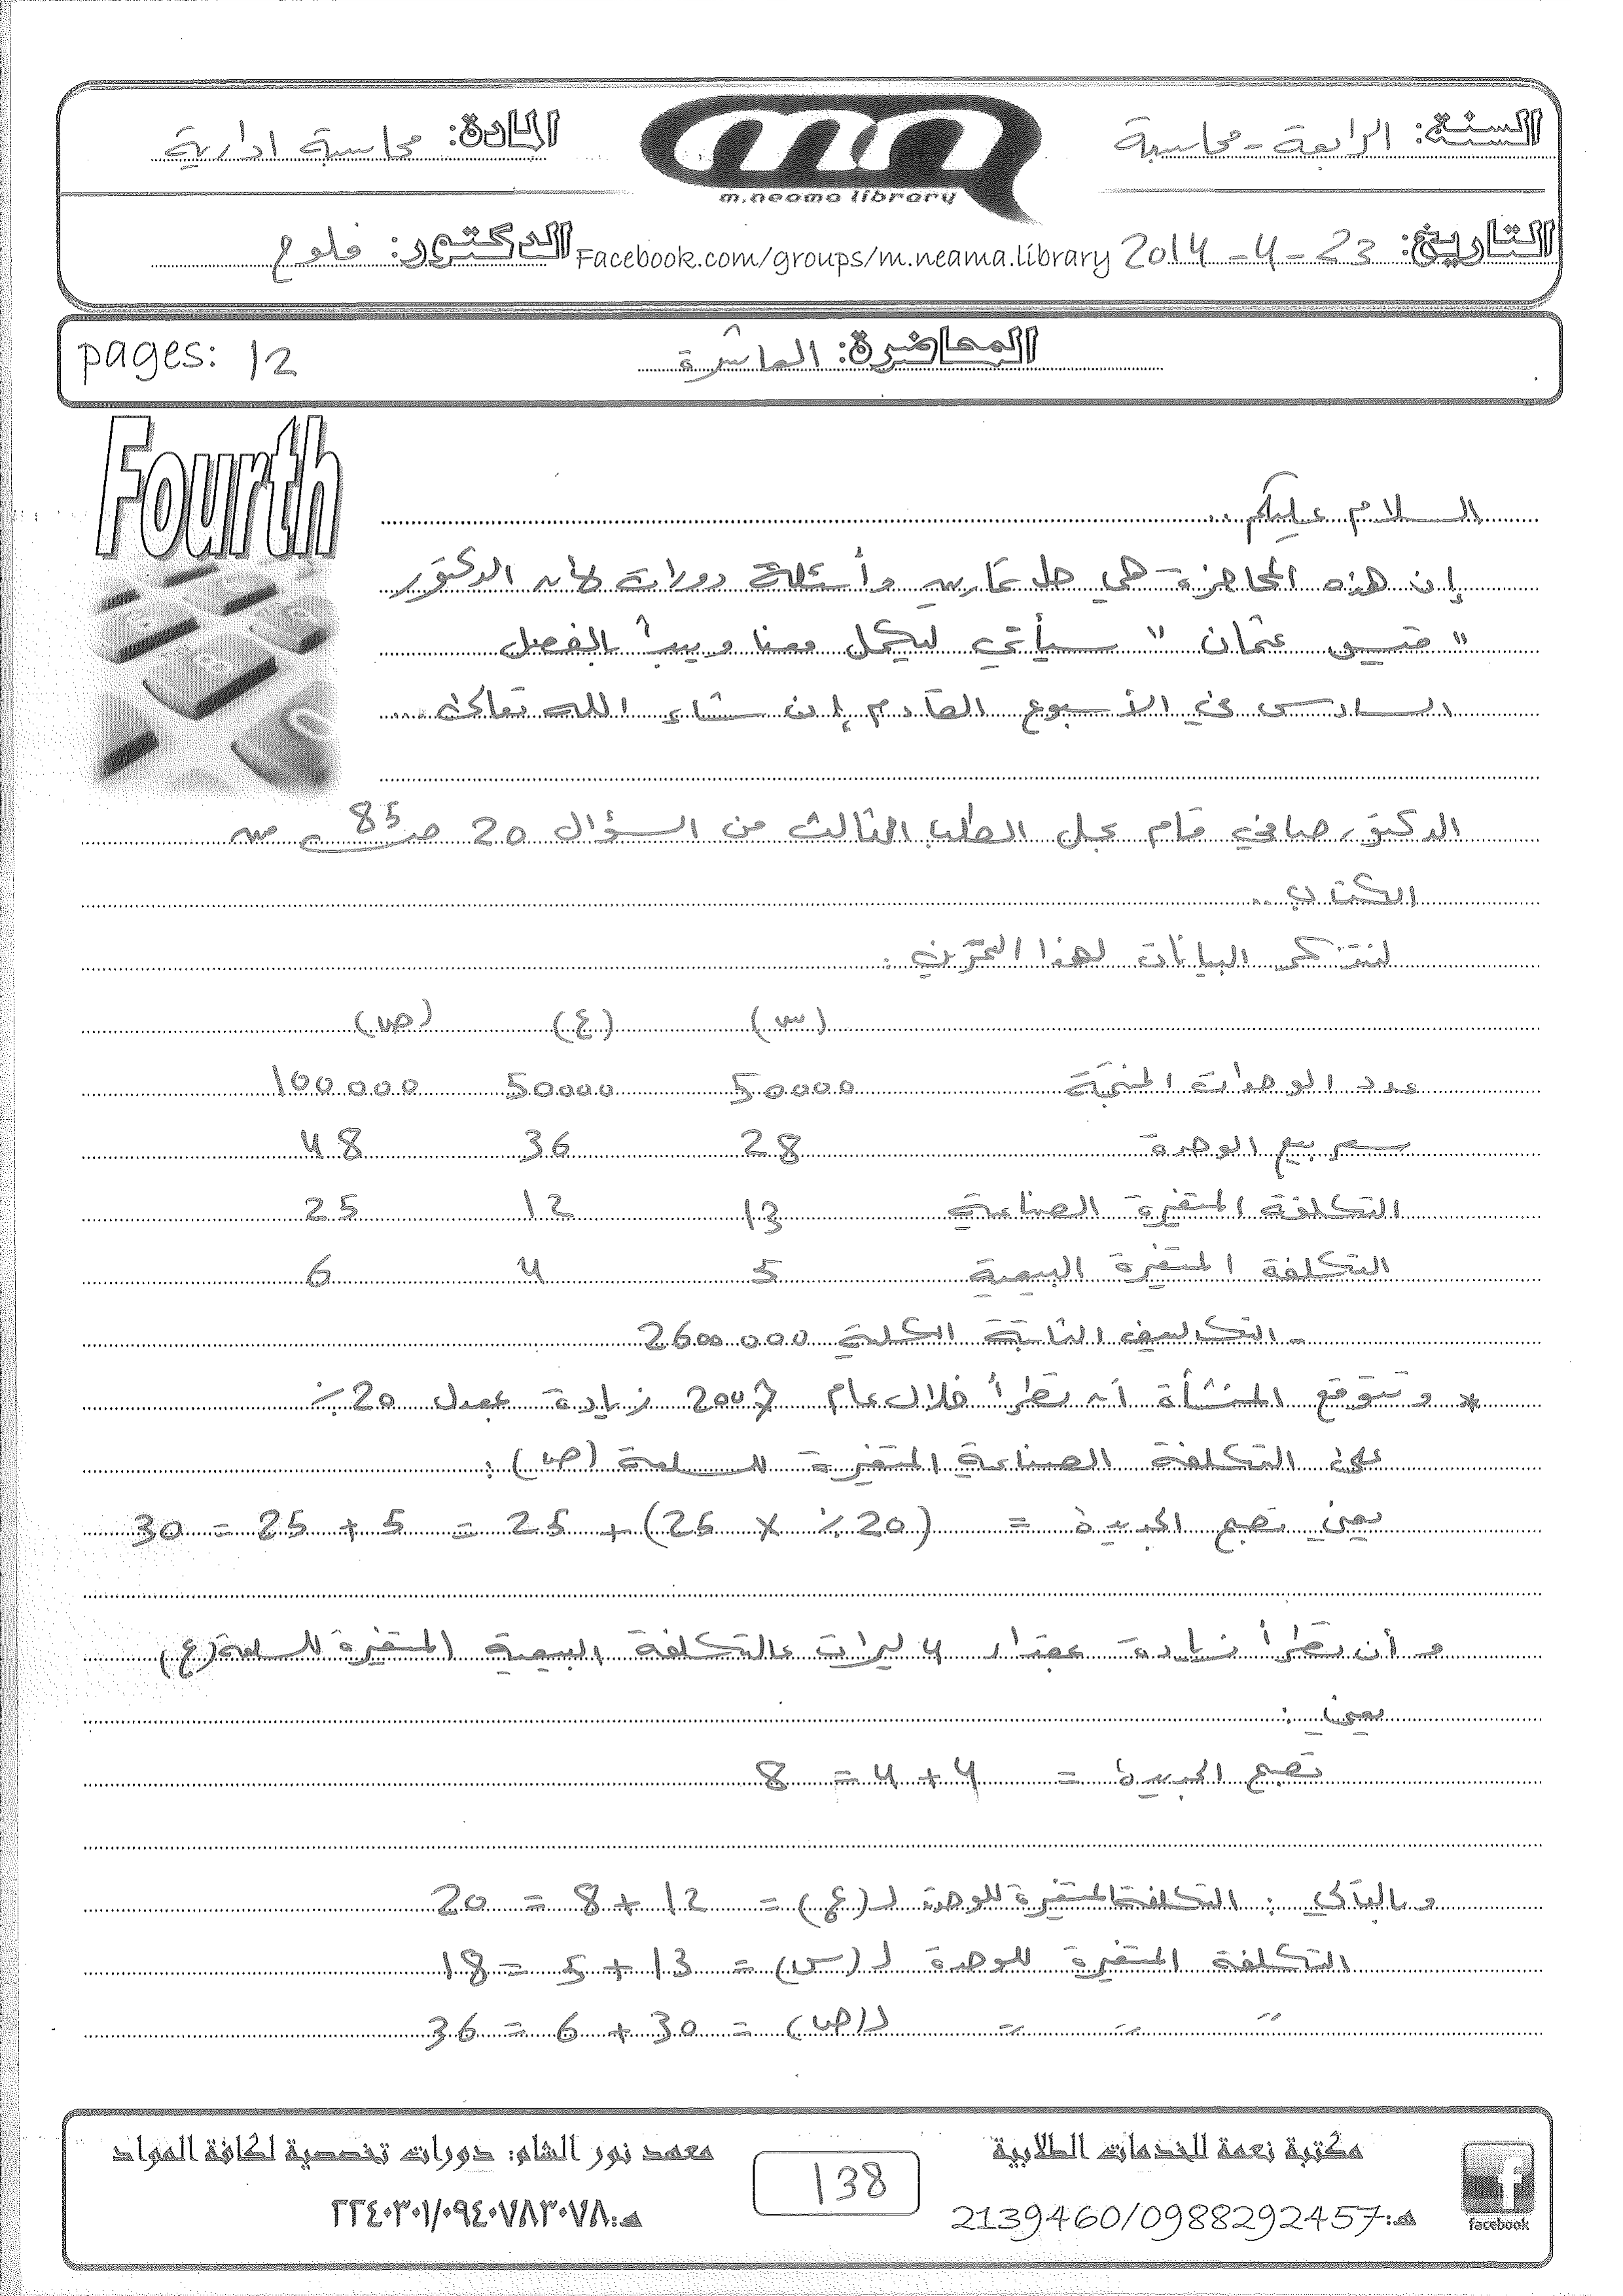 السنة: الرابعة - محاسبة
المادة: محاسبة ادارية
m.neama library
التاريخ: 23 - 4 - 2014
Facebook.com/groups/m.neama.library
الدكتور: فلوح
المحاضرة: العاشرة
pages: 12
Fourth
السلام عليكم ..
إن هذه المحاضرة هي حل تمارين وأسئلة دورات لأنه الدكتور
" قيس عثمان " سيأتي ليكمل معنا ويبدأ بالفصل
السادس في الأسبوع القادم إن شاء الله تعالى ...
الدكتور صافي قام بحل الطلب الثالث من السؤال 20 ص 85 من
الكتاب ..
لنتذكر البيانات لهذا التمرين :
(س) (ع) (ص)
عدد الوحدات المنتجة 50000 50000 100000
سعر بيع الوحدة 28 36 48
التكلفة المتغيرة الصناعية 13 12 25
التكلفة المتغيرة البيعية 5 4 6
- التكاليف الثابتة الكلية 2600000
* وتتوقع المنشأة أنه تطرأ خلال عام 2007 زيادة بمعدل 20 %
على التكلفة الصناعية المتغيرة للسلعة (ص) :
يعني تصبح الجديدة = (20 % × 25) + 25 = 5 + 25 = 30
وأن تطرأ زيادة بمقدار 4 ليرات عالتكلفة البيعية المتغيرة للسلعة (ع)
يعني :
تصبح الجديدة = 4 + 4 = 8
وبالتالي : التكلفة المتغيرة للوحدة لـ (ع) = 12 + 8 = 20
التكلفة المتغيرة للوحدة لـ (س) = 13 + 5 = 18
" " " لـ (ص) = 30 + 6 = 36
مكتبة نعمة للخدمات الطلابية
هـ: 2139460/0988292457
facebook
138
معهد نور الشام: دورات تخصصية لكافة المواد
هـ: ٢٢٤٠٣٠١/٠٩٤٠٧٨٣٠٧٨